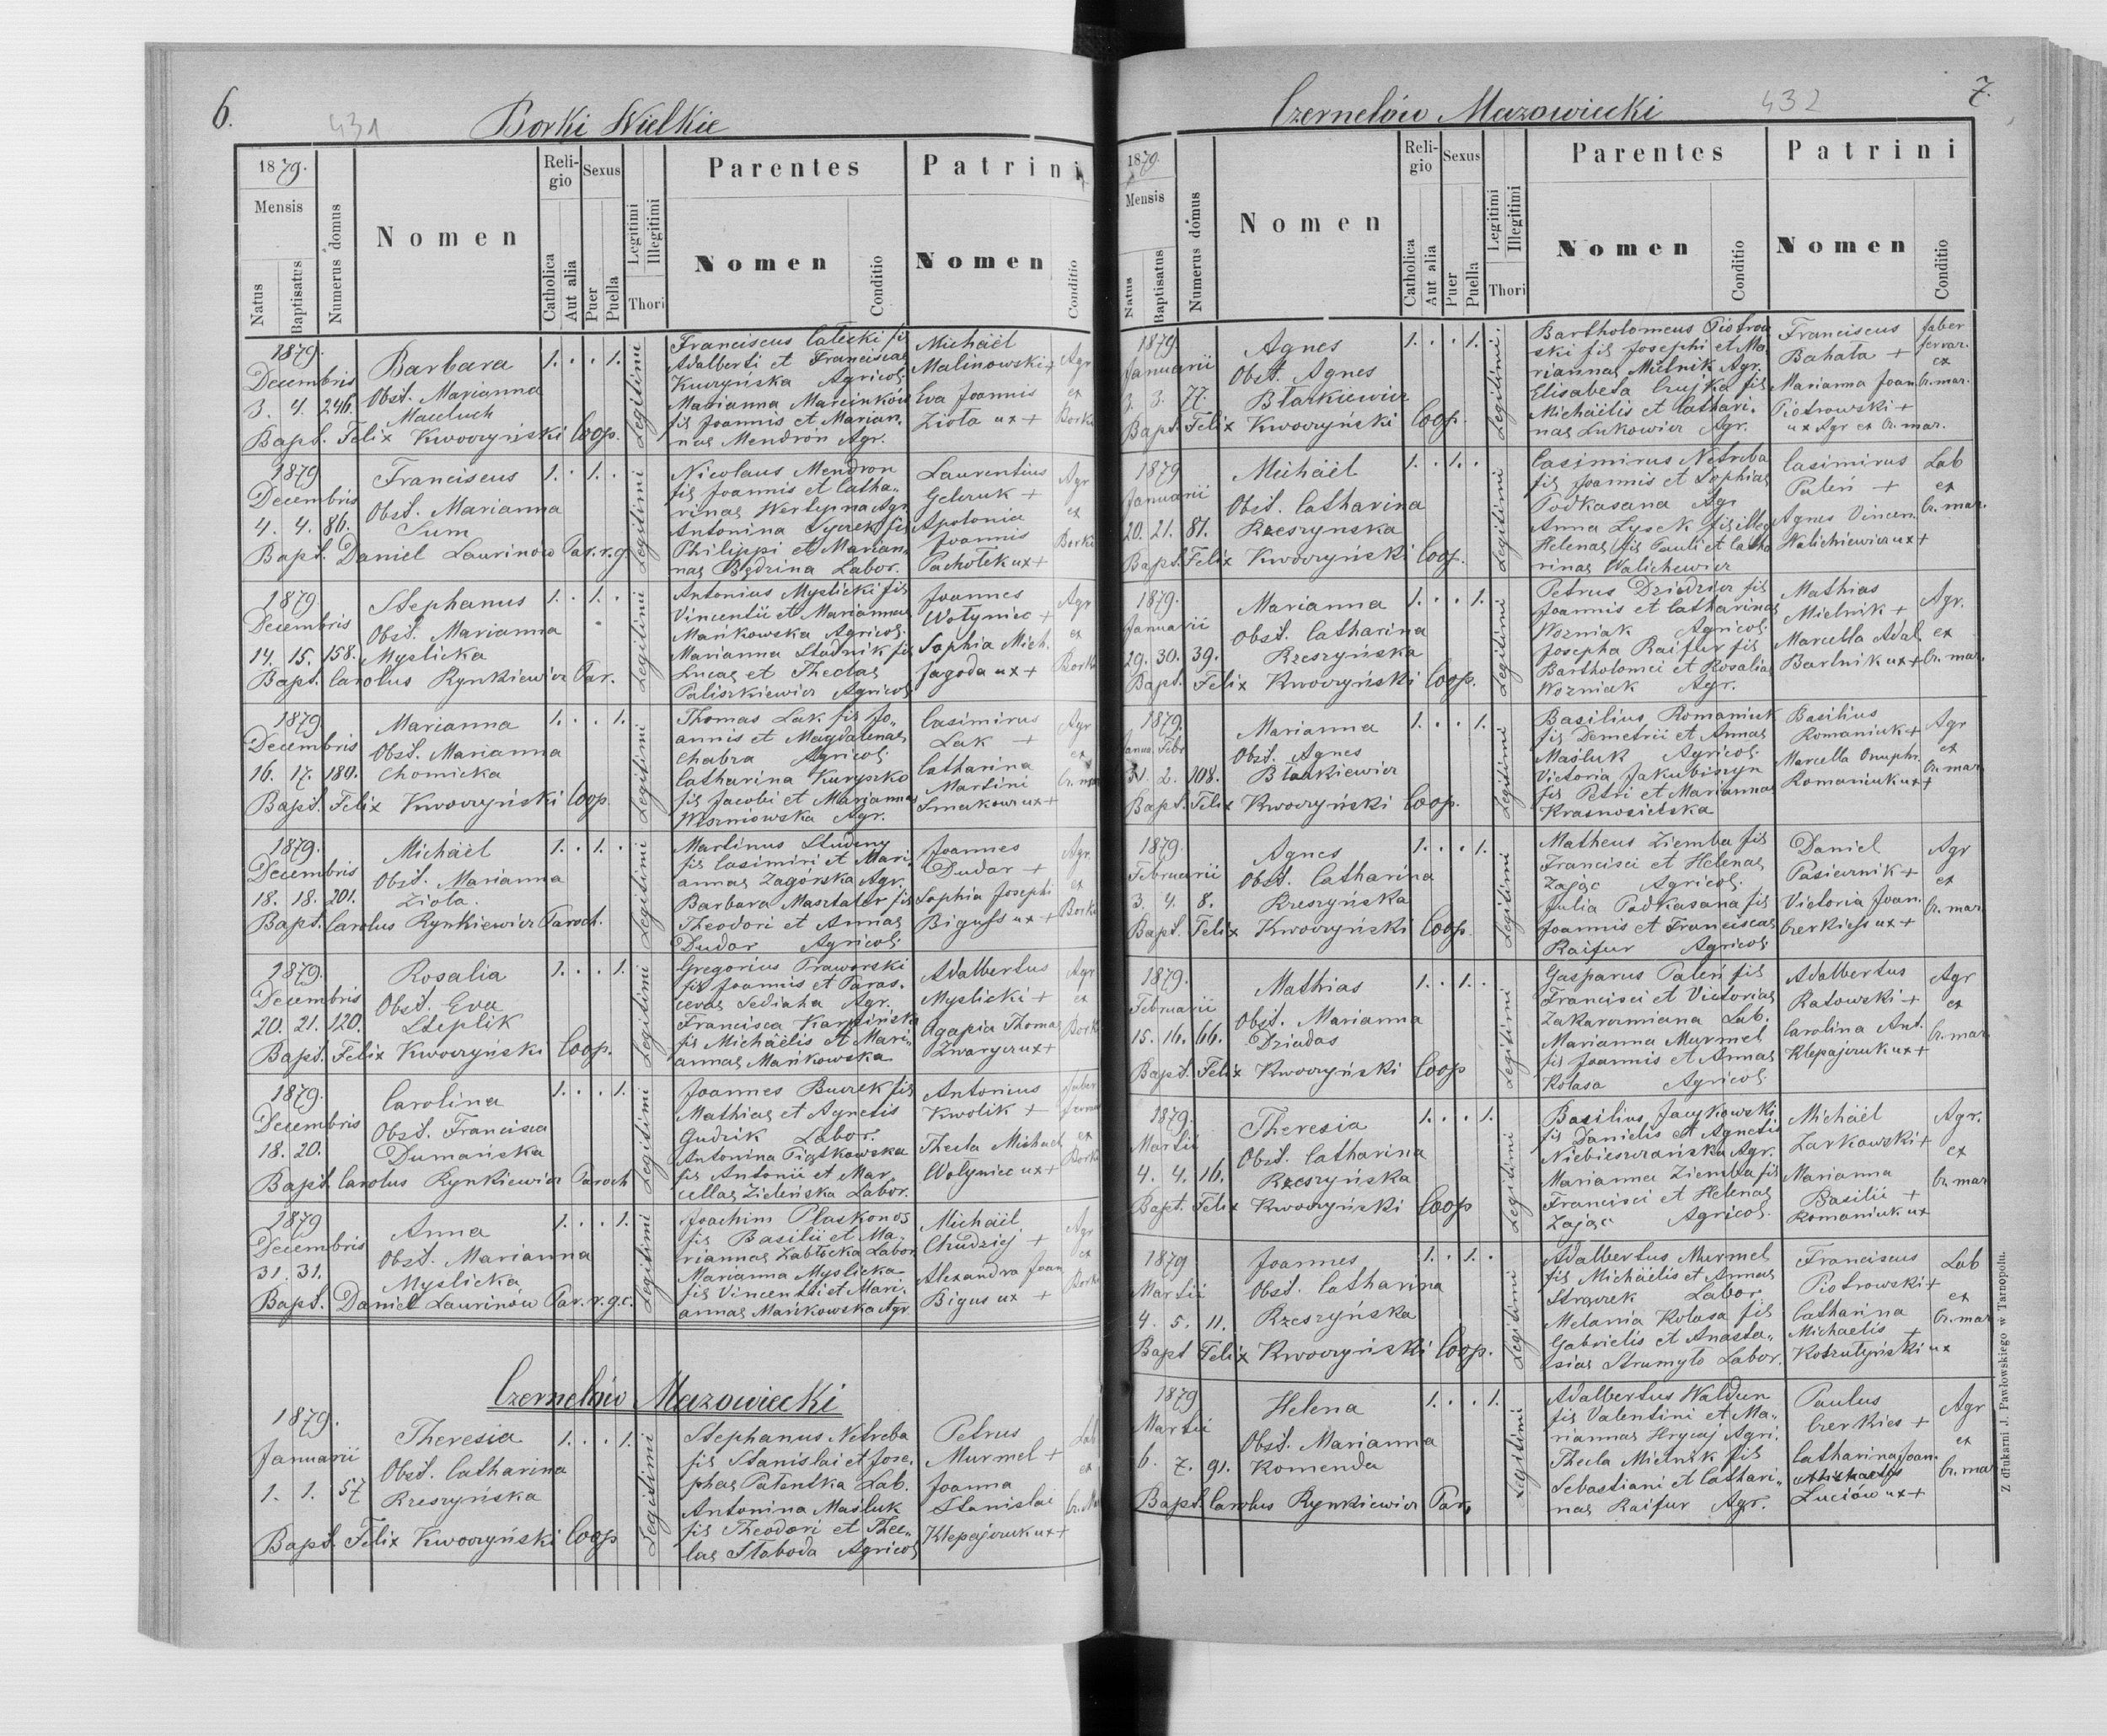 6.
431
Borki Wielkie
1879.
Mensis
Natus
Baptisatus
Numerus domus
Nomen
Religio
Catholica
Aut alia
Sexus
Puer
Puella
Legitimi
Illegitimi
Thori
Parentes
Nomen
Conditio
Patrini
Nomen
Conditio
1879.
Decembris
3. 4. 246.
Barbara
Obst. Marianna
Maceluch
Bapt. Felix Kwoczyński Coop.
1. . . 1.
Legitimi
Franciscus Calecki fis
Adalberti et Franciscae
Kuczyńska Agricol.
Marianna Marcinkow
fis Joannis et Marian.
nae Mendroń Agr.
Michaël
Malinowski +
Eva Joannis
Ziota ux +
Agr
ex
Borki
1879
Decembris
4. 4. 86.
Franciscus
Obst. Marianna
Sum
Bapt. Daniel Laurinów Par. r. g.
1. . 1. .
Legitimi
Nicolaus Mendron
fis Joannis et Catha„
rinae Wertepna Agr
Antonina Tyczek fis
Philippi et Marian„
nae Bydzina Labor.
Laurentius
Gelczuk +
Apolonia
Joannis
Pacholek ux +
Agr
ex
Borki
1879
Decembris
14. 15. 158.
Stephanus
Obst. Marianna
Myslicka
Bapt. Carolus Rynkiewicz Par.
1. . 1. .
Legitimi
Antonius Myslicki fis
Vincentii et Mariannae
Mańkowska Agricol.
Marianna Stadnik fis
Lucas et Theclae
Paliszkiewicz Agricol
Joannes
Wołyniec +
Sophia Mich.
Jagoda ux +
Agr
ex
Borki
1879
Decembris
16. 17. 180.
Marianna
Obst. Marianna
Chomicka
Bapt. Felix Kwoczyński Coop.
1. . . 1.
Legitimi
Thomas Lak fis Jo„
annis et Magdalenae
Chabra Agricol.
Catharina Kuryszko
fis Jacobi et Mariannae
Wiszniowska Agr.
Casimirus
Lak +
Catharina
Martini
Smakow ux +
Agr
ex
Cz. maz
1879.
Decembris
18. 18. 201.
Michaël
Obst. Marianna
Ziola.
Bapt. Carolus Rynkiewicz Paroch.
1. . 1. .
Legitimi
Martinus Studeny
fis Casimiri et Mari„
annae Zagórska Agr.
Barbara Masztaler fis
Theodori et Annae
Dudar Agricol.
Joannes
Dudar +
Sophia Josephi
Biguss ux +
Agr.
ex
Borki
1879.
Decembris
20. 21. 120.
Rosalia
Obst. Eva
Steplik
Bapt. Felix Kwoczyński Coop.
1. . . 1.
Legitimi
Gregorius Praworski
fis Joannis et Paras.
cevae Sediaha Agr.
Francisca Karpińska
fis Michaëlis et Mari„
annae Mańkowska
Adalbertus
Myslicki +
Agapia Thomae
Zwarycz ux +
Agr
ex
Borki
1879.
Decembris
18. 20.
Carolina
Obst. Francisca
Dumańska
Bapt. Carolus Rynkiewicz Paroch
1. . . 1.
Legitimi
Joannes Buczek fis
Mathiae et Agnetis
Gudzik Labor.
Antonina Piątkowska
fis Antonii et Mar
cellae Zieleńska Labor.
Antonius
Kwolik +
Thecla Michael
Wołyniec ux +
faber
ferrar
ex
Borki
1879
Decembris
31. 31.
Anna
Obst. Marianna
Myslicka
Bapt. Daniel Laurinów Par. r. g. c.
1. . . 1.
Legitimi
Joachim Płaskonos
fis Basilii et Ma„
riannae Zabłocka Labor
Marianna Myslicka
fis Vincentii et Mari.
annae Mańkowska Agr
Michaël
Chudziej +
Alexandra Joan
Bigus ux +
Agr
ex
Borki
Czernelów Mazowiecki
1879.
Januarii
1. 1. 57
Theresia
Obst. Catharina
Rzeszyńska
Bapt. Felix Kwoczyński Coop
1. . . 1.
Legitimi
Stephanus Netreba
fis Stanislai et Jose„
phae Patentka Lab.
Antonina Maśluk
fis Theodori et Thec„
lae Słaboda Agricol
Petrus
Murmel +
Joanna
Stanislai
Klepajczuk ux +
Lab
ex
Cz. Ma
Czernelów Mazowiecki
432
7.
1879.
Mensis
Natus
Baptisatus
Numerus domus
Nomen
Religio
Catholica
Aut alia
Sexus
Puer
Puella
Legitimi
Illegitimi
Thori
Parentes
Nomen
Conditio
Patrini
Nomen
Conditio
1879
Januarii
3. 3. 77.
Agnes
Obst. Agnes
Błaikiewicz
Bapt. Felix Kwoczyński Coop.
1. . . 1.
Legitimi.
Bartholomeus Piotrow
ski fis Josephi et Ma„
riannae Mielnik Agr.
Elisabeta Czujka fis
Michaëlis et Cathari.
nae Lukowicz Agr.
Franciscus
Bahata +
Marianna Joan
Piotrowski +
ux Agr ex Cz. maz.
faber
ferrar.
ex
Cz. maz.
1879
Januarii
20. 21. 81.
Michaël
Obst. Catharina
Rzeszynska
Bapt. Felix Kwoczyński Coop.
1. . 1. .
Legitimi
Casimirus Netreba
fis Joannis et Sophiae
Podkasana Agr
Anna Lysek fis illeg
Helenae fis Pauli et Catha
rinae Walichiewicz
Casimirus
Paleń +
Agnes Vincen.
Walichiewicz ux +
Lab
ex
Cz. maz.
1879.
Januarii
29. 30. 39.
Marianna
Obst. Catharina
Rzeszyńska
Bapt. Felix Kwoczyński Coop.
1. . . 1.
Legitimi
Petrus Dziedzicz fis
Joannis et Catharinae
Wozniak Agricol.
Josepha Raifur fis
Bartholomei et Rosaliae
Wozniak Agr.
Mathias
Mielnik +
Marcella Adal.
Bartnik ux +
Agr.
ex
Cz. maz.
1879.
Janu. Febr
31. 2. 108.
Marianna
Obst. Agnes
Błaikiewicz
Bapt. Felix Kwoczyński Coop.
1. . . 1.
Legitimi
Basilius Romaniuk
fis Demetrii et Annae
Maśluk Agricol.
Victoria Jakubiszyn
fis Petri et Mariannae
Krasnosielska
Basilius
Romaniuk +
Marcella Onuphr.
Romaniuk ux +
Agr
ex
Cz. maz
1879.
Februarii
3. 4. 8.
Agnes
Obst. Catharina
Rzeszyńska
Bapt. Felix Kwoczyński Coop.
1. . . 1.
Legitimi
Matheus Ziemba fis
Francisci et Helenae
Zając Agricol.
Julia Podkasana fis
Joannis et Franciscae
Raifur Agricol
Daniel
Pasiecznik +
Victoria Joan.
Czerkiess ux +
Agr
ex
Cz. maz.
1879.
Februarii
15. 16. 66.
Mathias
Obst. Marianna
Dziadas
Bapt. Felix Kwoczyński Coop
1. . 1. .
Legitimi
Gasparus Paleń fis
Francisci et Victoriae
Zakaczmiana Lab.
Marianna Murmel
fis Joannis et Annae
Kolasa Agricol.
Adalbertus
Ratowski +
Carolina Ant.
Klepajczuk ux +
Agr
ex
Cz. maz.
1879.
Martii
4. 4. 16.
Theresia
Obst. Catharina
Rzeszyńska
Bapt. Felix Kwoczyński Coop
1. . . 1.
Legitimi
Basilius Jacykowski
fis Danielis et Agnetis
Niebieszczańska Agr.
Marianna Ziemba fis
Francisci et Helenae
Zając Agricol.
Michaël
Zarkowski +
Marianna
Basilii +
Romaniuk ux
Agr.
ex
Cz. maz
1879
Martii
4. 5. 11.
Joannes
Obst. Catharina
Rzeszyńska
Bapt Felix Kwoczyński Coop.
1. . 1. .
Legitimi
Adalbertus Murmel
fis Michaëlis et Annae
Strączek Labor
Melania Kolasa fis
Gabrielis et Anasta„
siae Strumyło Labor.
Franciscus
Piotrowski +
Catharina
Michaelis +
Kotrutyński ux
Lab
ex
Cz. maz
1879
Martii
6. 7. 91.
Helena
Obst. Marianna
Komenda
Bapt. Carolus Rynkiewicz Par.
1. . . 1.
Legitimi
Adalbertus Waldun
fis Valentini et Ma„
riannae Hrycaj Agri.
Thecla Mielnik fis
Sebastiani et Cathari„
nae Raifur Agr.
Paulus
Czerkies +
Catharina Joan.
Luciów ux +
Agr
ex
Cz. maz
Z drukarni J. Pawłowskiego w Tarnopolu.